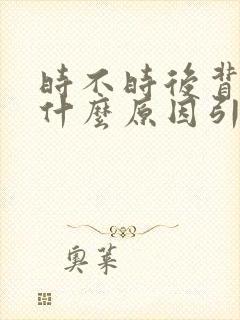 時不時後背
什麼原因引
奧萊